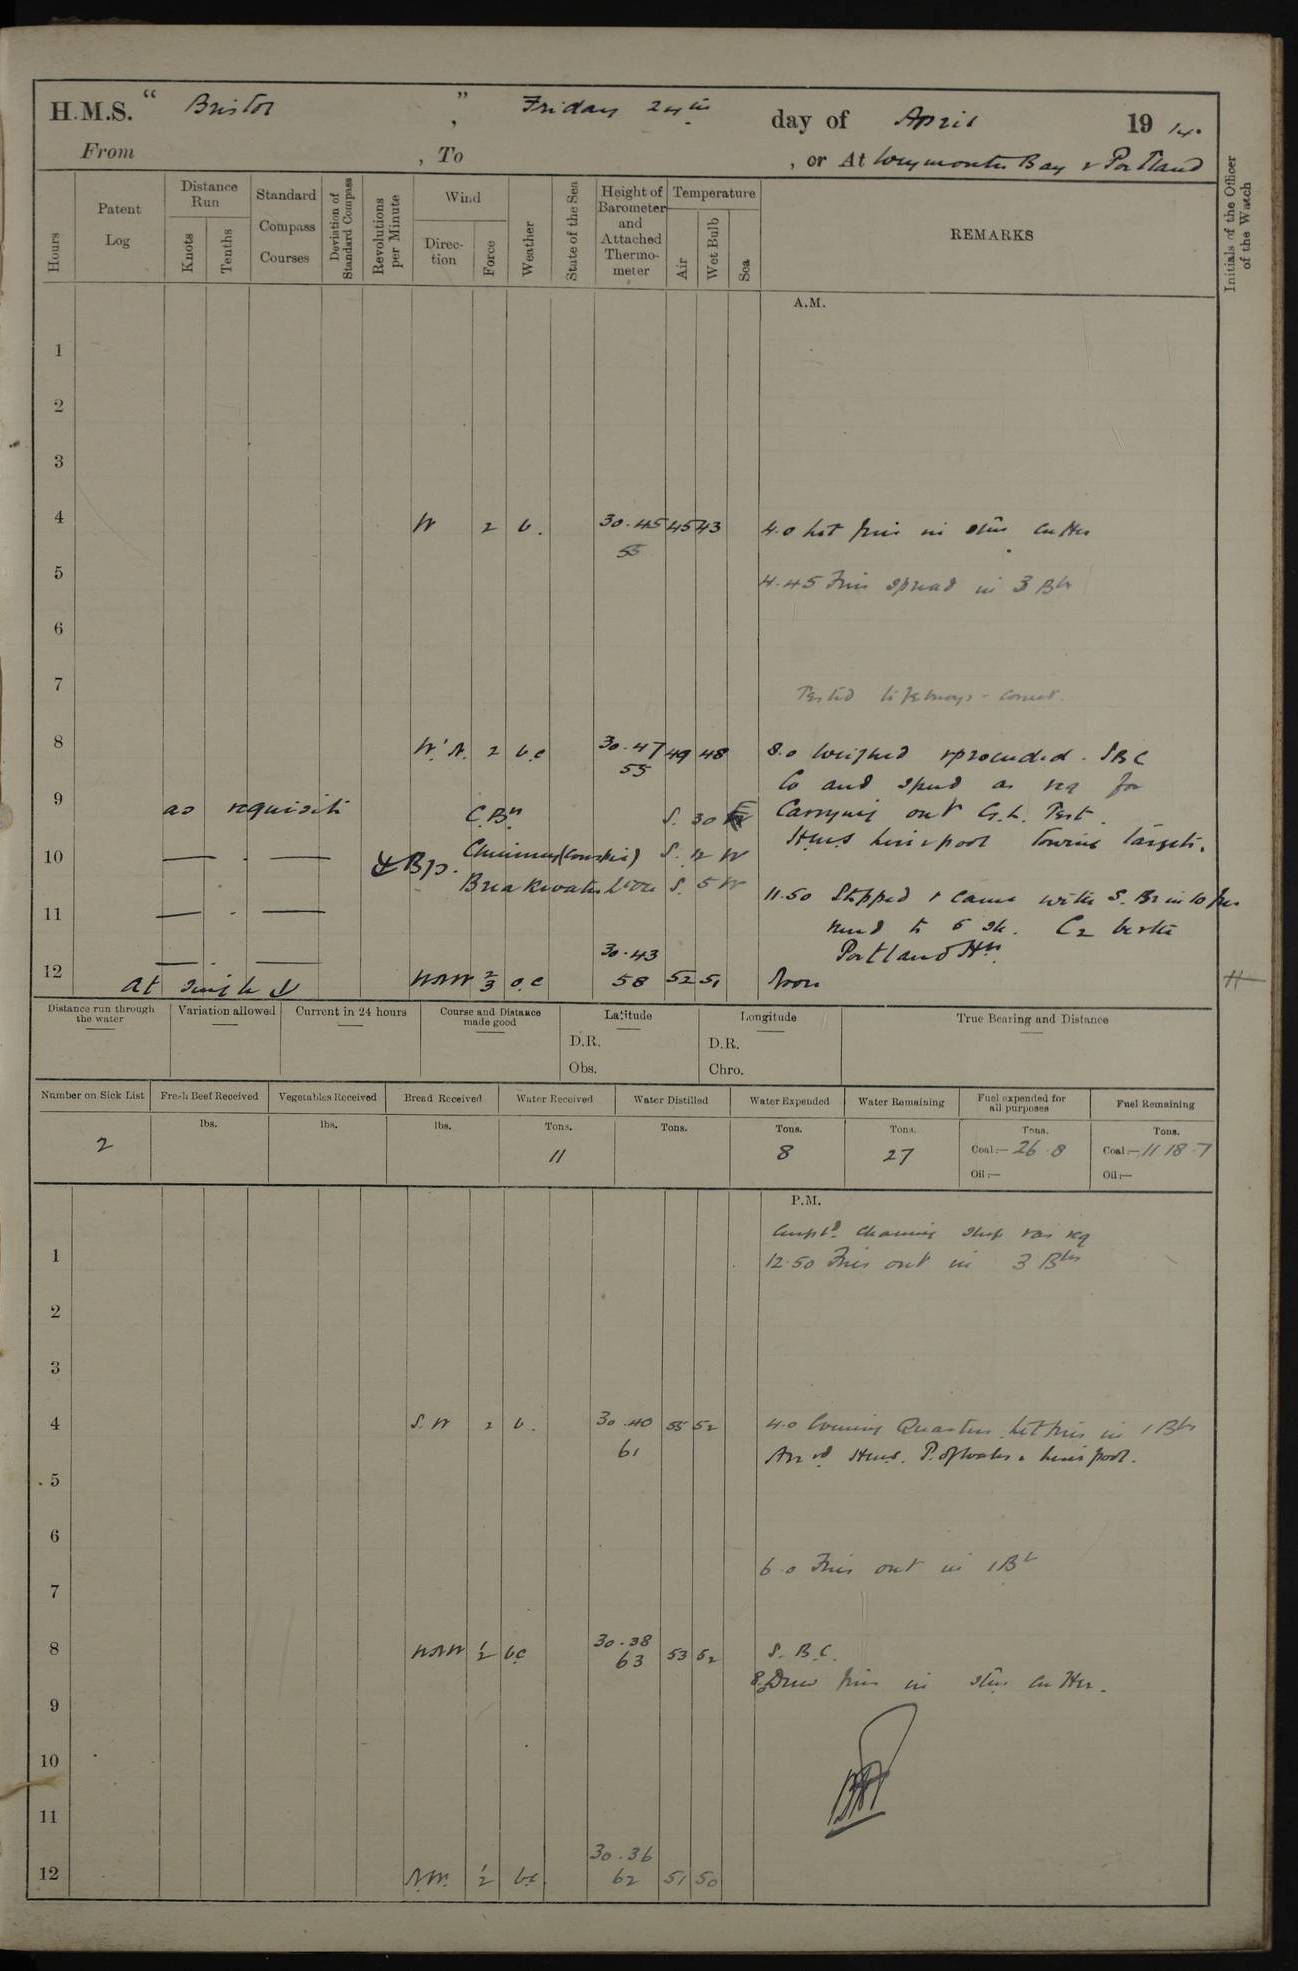 H.M.S. “ Bristol ” , Friday 24th day of April 1914.
From , To , or At Weymouth Bay & Portland
Hours
Patent Log
Distance Run
Knots
Tenths
Standard Compass Courses
Deviation of Standard Compass
Revolutions per Minute
Wind
Direction
Force
Weather
State of the Sea
Height of Barometer and Attached Thermometer
Temperature
Air
Wet Bulb
Sea
REMARKS
Initials of the Officer of the Watch
A.M.
1
2
3
4 W 2 b. 30.45 45 43 4.0 Lit fires in stm cutter
55
5 4.45 Fires spread in 3 Blrs
6
7 Tested lifebuoys - correct.
8 W'N. 2 b.c 30.47 49 48 8.0 Weighed & proceeded. SBC
55
Co and speed as req for
9 as requisite C.Bn. S. 30 Carrying out G.L. Test.
H.M.S Liverpool towing targets.
10 — . — Bgs. Chimney (Conspic) S. 12 W
Breakwater S. 5 W
11.50 Stopped & came with S. Br in 10 fms
11 — . — veered to 5 sh. C2 berth
Portland Hr.
— . — 30.43
12 At single NNW 2/3 o.c 58 52 51 Noon
Distance run through the water
Variation allowed
Current in 24 hours
Course and Distance made good
Latitude
D.R.
Obs.
Longitude
D.R.
Chro.
True Bearing and Distance
Number on Sick List
Fresh Beef Received
Vegetables Received
Bread Received
Water Received
Water Distilled
Water Expended
Water Remaining
Fuel expended for all purposes
Fuel Remaining
2
lbs.
lbs.
lbs.
Tons. 11
Tons.
Tons. 8
Tons. 27
Tons. Coal:— 26.8
Oil:—
Tons. Coal:— 1118.7
Oil:—
P.M.
Empld. cleaning ship & as req
1 12.50 Fires out in 3 Blrs
2
3
4 S.W 2 b. 30.40 55 52 4.0 Evening Quarters. Lit fires in 1 Blr
61 Arrd. H.M.S. P. of Wales & Liverpool.
5
6
6.0 Fires out in 1 Blr
7
8 NNW 1/2 b.c 30.38 53 52 S.B.C.
63
8. Drew fires in stm cutter.
9
10
11
30.36
12 N.W. 1/2 b.c. 62 51 50